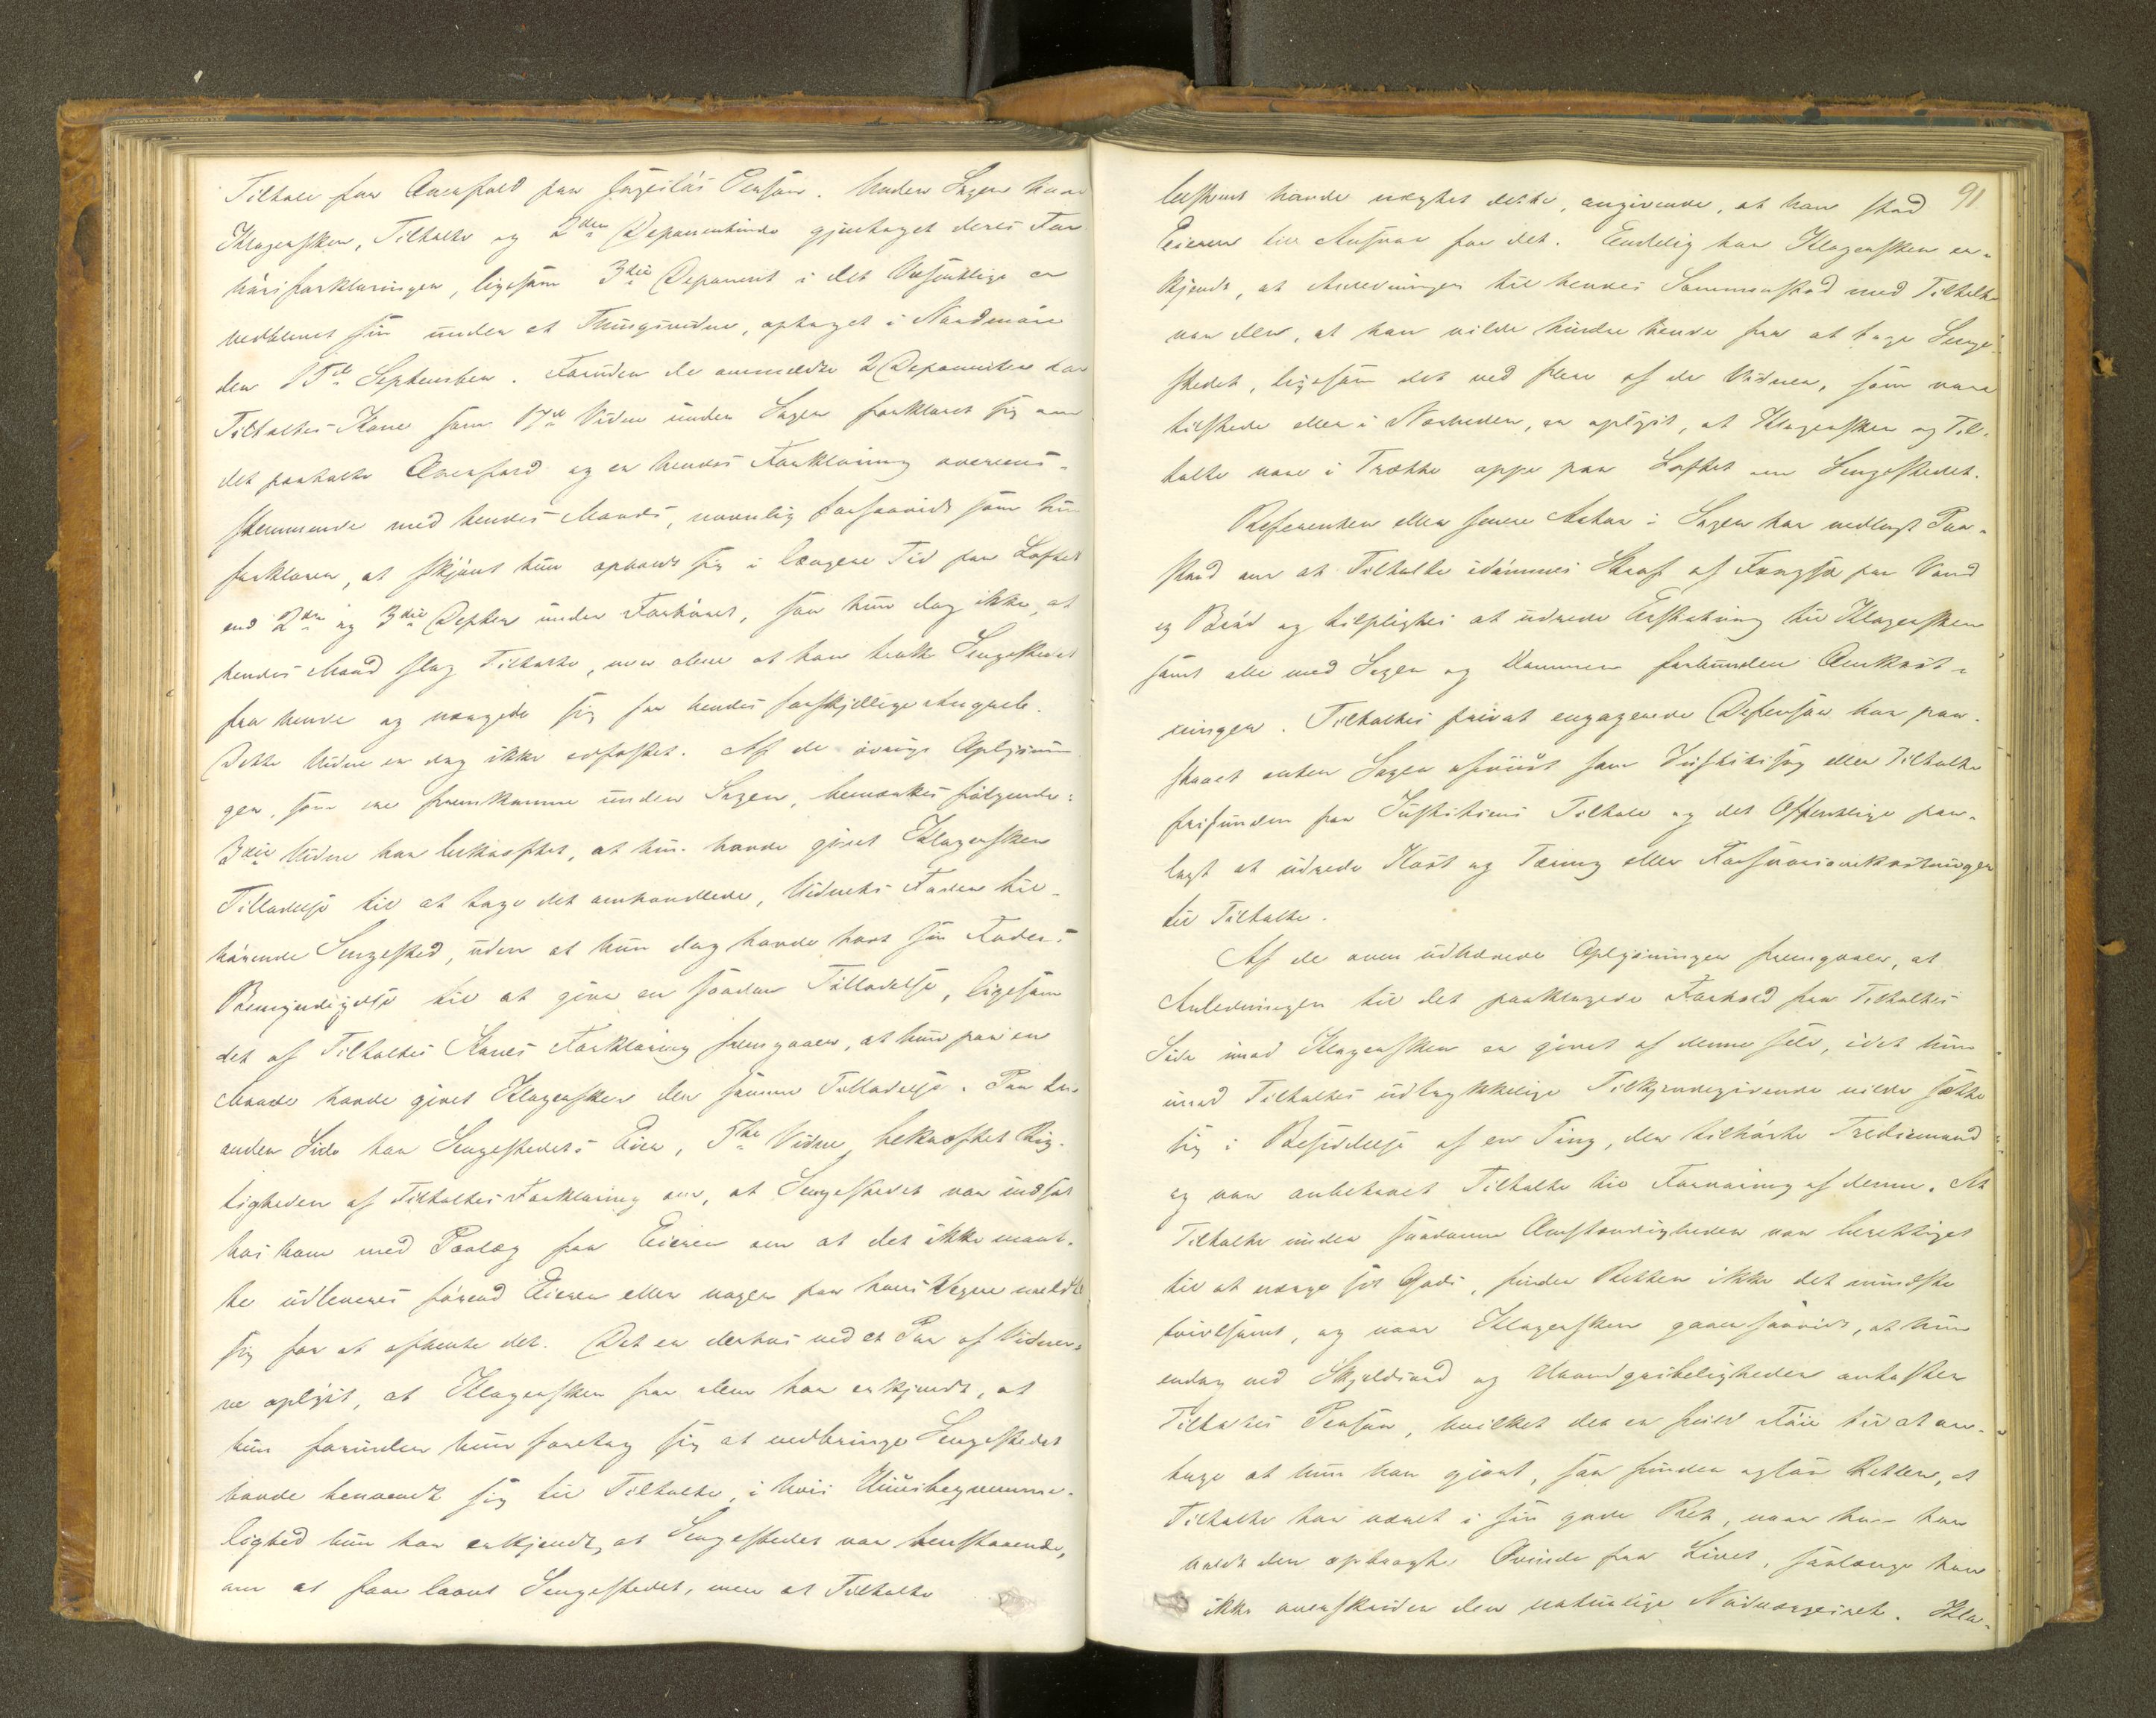 Tiltale for Overfald paa Ingeilds Person. Under Sagen have
Klagersken, Tiltalte og 2den Deponentinde gjentaget deres For-
hørsforklaringer, ligesom 3die Deponent i det Væsentlige er
vedblevet sin under et Thingsvidne, optaget i Nordmøre
den 15de September. Foruden de anmeldte 2 Deponenter har
Tiltaltes Kone som 17de Vidne under Sagen forklaret sig om
det paatalte Overfald og er hendes Forklaring overens-
stemmende med hendes Mands, navnlig forsaavidt som hun
forklarer, at skjønt hun opholdt sig i længere Tid paa Loftet
end 2den og 3die Depter under Forhøret, saa hun dog ikke, at
hendes Mand slog Tiltalte, men alene at han trak Sengestedet
fra hende og værgede sig for hendes forskjellige Angreb.
Dette Vidne er dog ikke edfæstet. Af de øvrige Oplysnin-
ger, som ere fremkomne under Sagen, bemærkes følgende:
3die Vidne har bekræftet, at hun havde givet Klagersken
Tilladelse til at tage det omhandlede, Vidnets Fader til-
hørende Sengested, uden at hun dog havde havt sin Faders
Bemyndigelse til at give en saadan Tilladelse, ligesom
det af Tiltaltes Kones Forklaring fremgaaer, at hun paa en
Maade havde givet Klagersken den samme Tilladelse. Paa den
anden Side har Sengestedets Eier, 5te Vidne, bekræftet Rig-
tigheden af Tiltaltes Forklaring om, at Sengestedet var indsat
hos ham med Paalæg fra Eieren om at det ikke maat-
te udleveres førend Eieren eller nogen paa hans Vegne meldte
sig for at afhente det. Det er derhos ved et Par af Vidner-
ne oplyst, at Klagersken for dem har erkjendt, at
hun forinden hun foretog sig at nedbringe Sengestedet
havde henvendt sig til Tiltalte, i hvis Huusbeqvemme-
lighed hun har erkjendt, at Sengestedet var henstaaende,
om at faae laant Sengestedet, men at Tiltalte
91
bestemt havde nægtet dette, angivende, at han stod
Eieren til Ansvar for det. Endelig har Klagersken er-
kjendt, at Anledningen til hendes Sammenstød med Tiltalte
var den, at han vilde hindre hende fra at tage Senge-
stedet, ligesom det ved flere af de Vidner, som vare
tilstede eller i Nærheden, er oplyst, at Klagersken og Til-
talte vare i Trætte oppe paa Loftet om Sengestedet.
Referenten eller senere Aktor i Sagen har nedlagt Paa-
stand om at Tiltalte idømmes Straf af Fængsel paa Vand
og Brød og tilpligtes at udrede Erstatning til Klagersken
samt alle med Sagen og Dommen forbundne Omkost-
ninger. Tiltaltes privat engagerede Defensor har paa-
staaet enten Sagen afviist som Justitssag eller Tiltalte
frifunden for Justitiens Tiltale og det Offentlige paa-
lagt at udrede Kost og Tæring eller Forsvarsomkostninger
til Tiltalte.
Af de oven udhævede Oplysninger fremgaaer, at
Anledningen til det paaklagede Forhold fra Tiltaltes
Side imod Klagersken er givet af denne selv, idet hun
imod Tiltaltes udtrykkelige Tilkjendegivende vilde sætte
sig i Besiddelse af en Ting, der tilhørte Trediemand
og var anbetroet Tiltalte til Forvaring af denne. At
Tiltalte under saadanne Omstændigheder var berettiget
til at værge sit Gods, finder Retten ikke det mindste
tvivlsomt, og naar Klagersken gaaer saavidt, at hun
endog ved Skjeldsord og Haandgribeligheder antaster
Tiltaltes Person, hvilket der er fuld Føie til at an-
tage at hun har gjort, saa finder ogsaa Retten, at
Tiltalte har været i sin gode Ret, naar han har
holdt den opbragte Qvinde fra Livet, saalænge han
ikke overskrider den naturlige Nødværgeret. Kla-